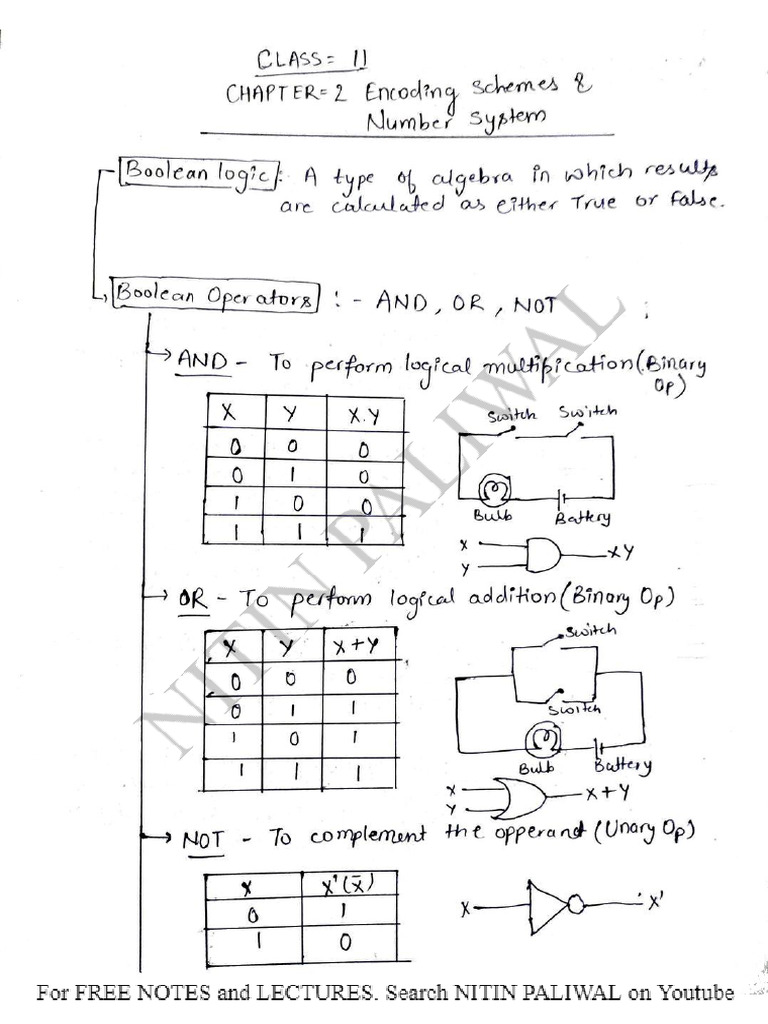 CLASS = 11
CHAPTER = 2 Encoding Schemes &
Number System
Boolean logic : A type of algebra in which results
are calculated as either True or False.
Boolean Operators :- AND, OR, NOT
AND - To perform logical multipication (Binary
Op)
X Y X.Y
0 0 0
0 1 0
1 0 0
1 1 1
Switch Switch
Bulb Battery
X
Y
XY
OR - To perform logical addition (Binary Op)
X Y X+Y
0 0 0
0 1 1
1 0 1
1 1 1
Switch
Switch
Bulb Battery
X
Y
X+Y
NOT - To complement the opperand (Unary Op)
X X'(X̄)
0 1
1 0
X X'
NITIN PALIWAL
For FREE NOTES and LECTURES. Search NITIN PALIWAL on Youtube